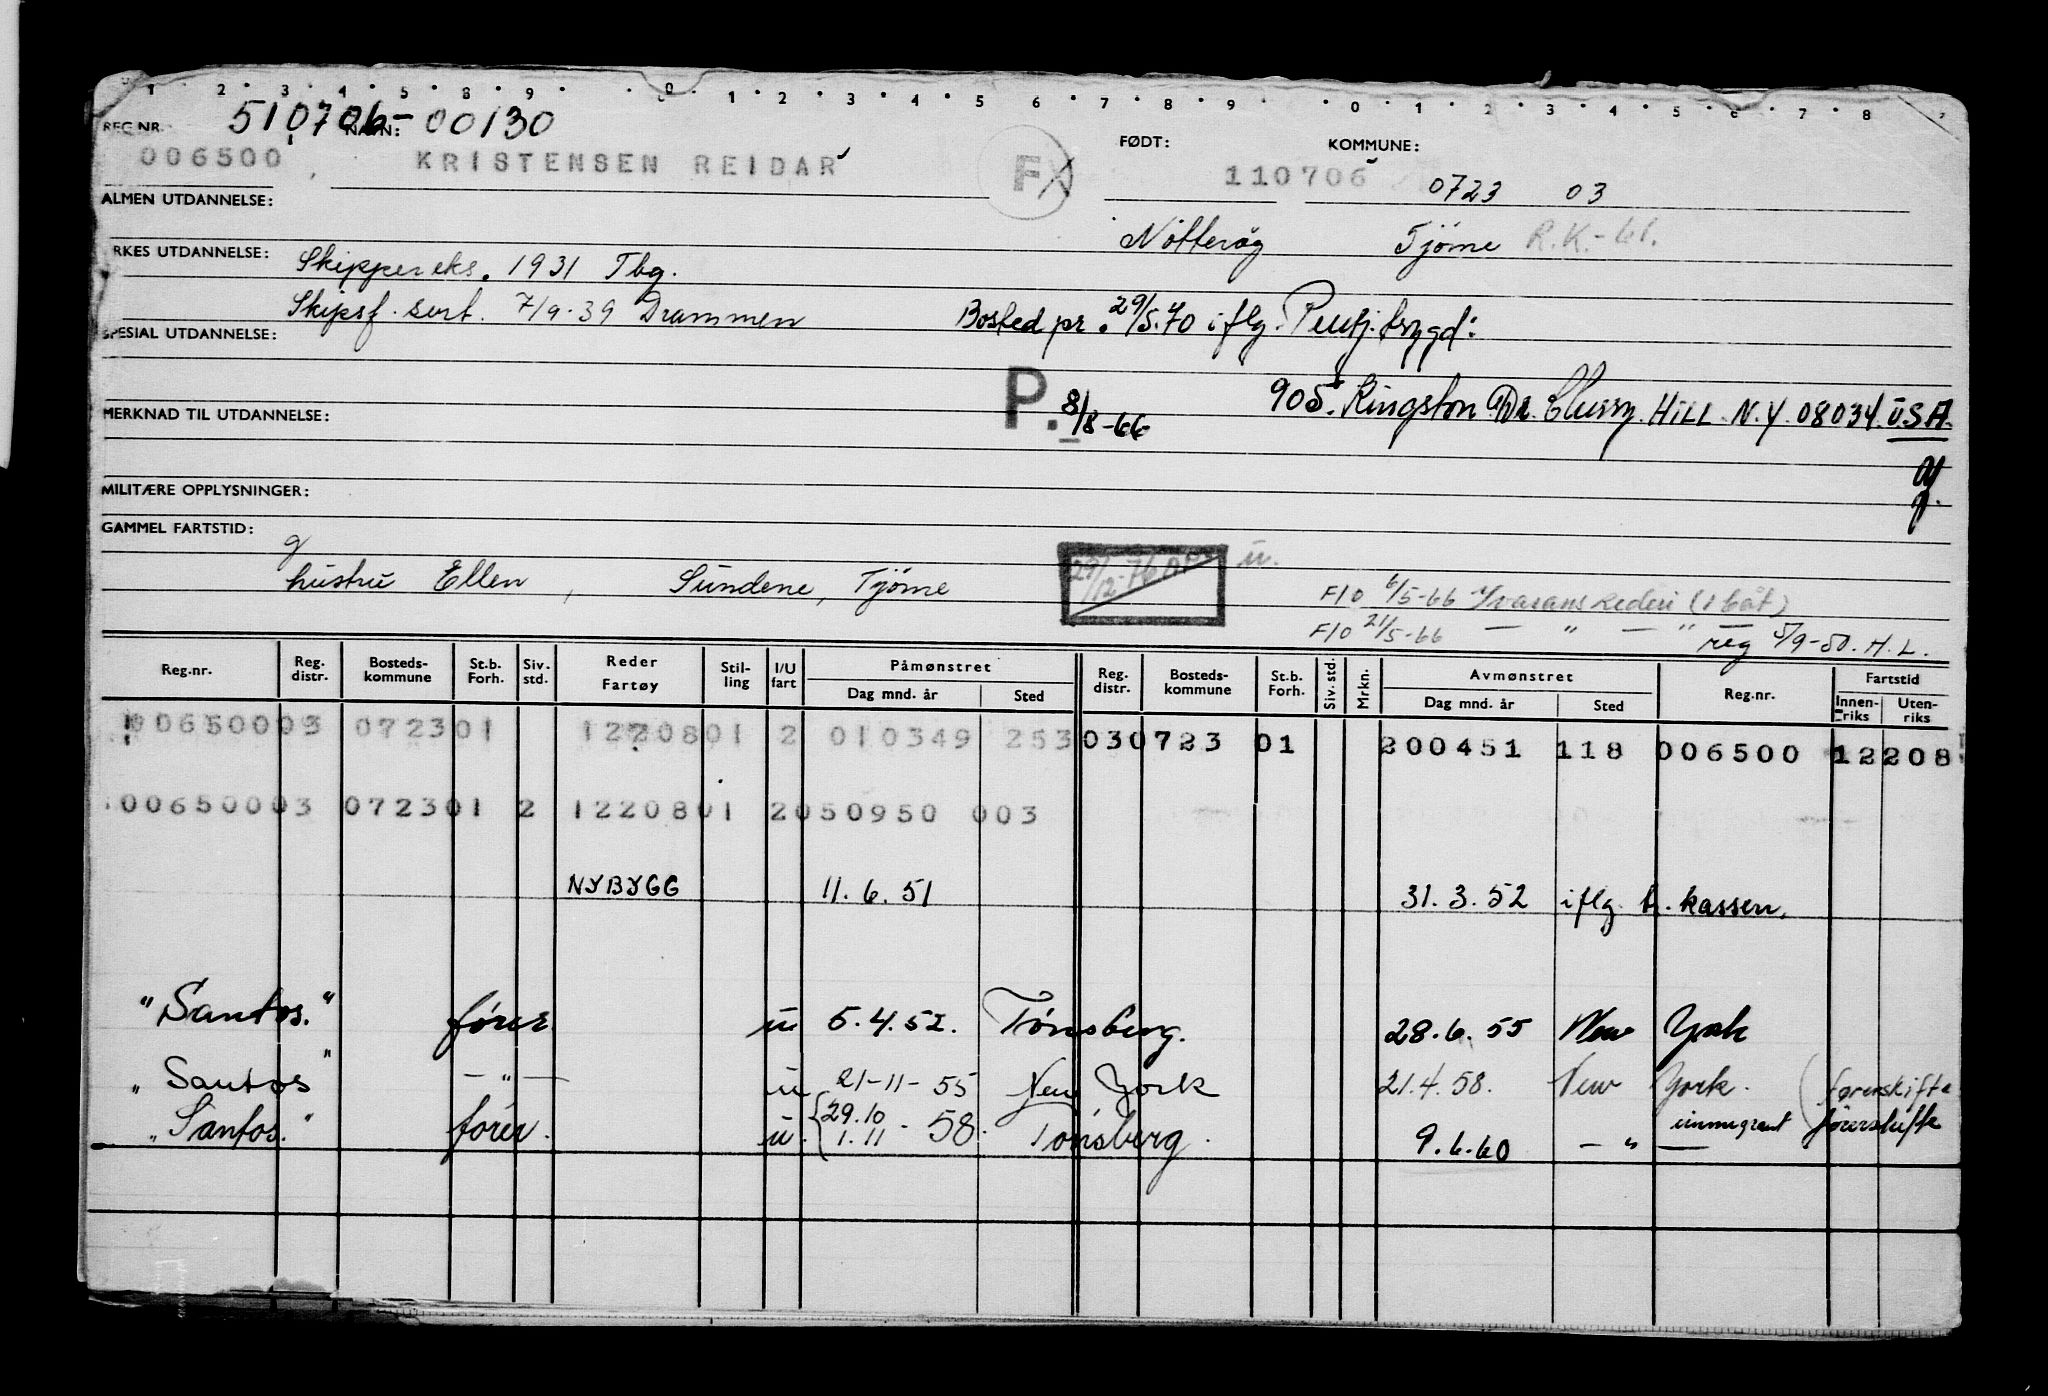 1 2 3 4 5 8 9 0 1 2 3 4 5 6 7 8 9 0 1 2 3 4 5 6 7 8
REG.NR. 510706-00130 NAVN: FØDT: KOMMUNE:
006500 KRISTENSEN REIDAR F 110706 0723 03
ALMEN UTDANNELSE:
Nötteröy Tjöme R.K.-61.
YRKES UTDANNELSE: Skippereks. 1931 Tbg.
Skipsf. sert. 7/9-39 Drammen Bosted pr. 29/5.70 iflg. Pensj.trygd:
SPESIAL UTDANNELSE:
P. 8/8-66 905. Kingston Dr. Cherry. HILL. N.Y. 08034. U.S.A.
MERKNAD TIL UTDANNELSE:
MILITÆRE OPPLYSNINGER:
GAMMEL FARTSTID:
g
hustru Ellen, Sundene, Tjöme 29/12-76 u.
F/O 6/5-66 Yvarans Rederi (1 båt)
F/O 21/5-66 — " — " —
reg 5/9-80. H.L.
Reg.nr. Reg. distr. Bosteds-kommune St.b. Forh. Siv. std. Reder Fartøy Stil-ling I/U fart Påmønstret Dag mnd. år Sted Reg. distr. Bosteds-kommune St.b. Forh. Siv. std. Mrkn. Avmønstret Dag mnd. år Sted Reg.nr. Fartstid Innen-riks Uten-riks
006500 03 0723 01 1220801 2 010349 253 03 0723 01 200451 118 006500 12208
006500 03 0723 01 2 1220801 2 050950 003
NYBYGG 11.6.51 31.3.52 iflg. tr. kassen.
"Santos." förer u 5.4.52. Tönsberg. 28.6.55 New York
"Santos" — " — u 21-11-55 New York 21.4.58. New York. (förerskifte
"Santos." förer. u. {29.10 1.11 - 58. Tönsberg. 9.6.60 — " — immigrant förerskifte